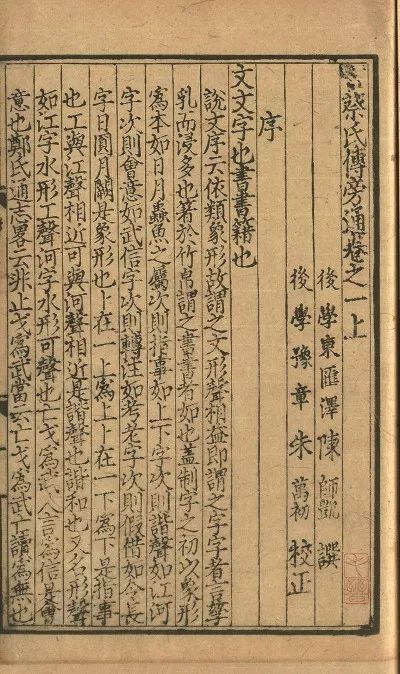 蔡氏傳旁通卷之一上
後學東匯澤陳師凱譔
後學豫章朱萬初校正
序
文文字也書書籍也
說文序云依類象形故謂之文形聲相益即謂之字字者言孳
乳而浸多也著於竹帛謂之書書者如也盖制字之初以象形
為本如日月蟲魚之屬次則指事如上下字次則諧聲如江河
字次則會意如武信字次則轉注如考老字次則假借如令長
字日圓月闕母象形也上在一上為上下在一下為下是指事
也工與江聲相近可與河聲相近是諧聲也諧和也又名形聲
如江字水形工聲河字水形可聲也止戈為武人言為信是會
意也鄭氏通志畧云非止戈為武當云亡戈為武亡讀為無也